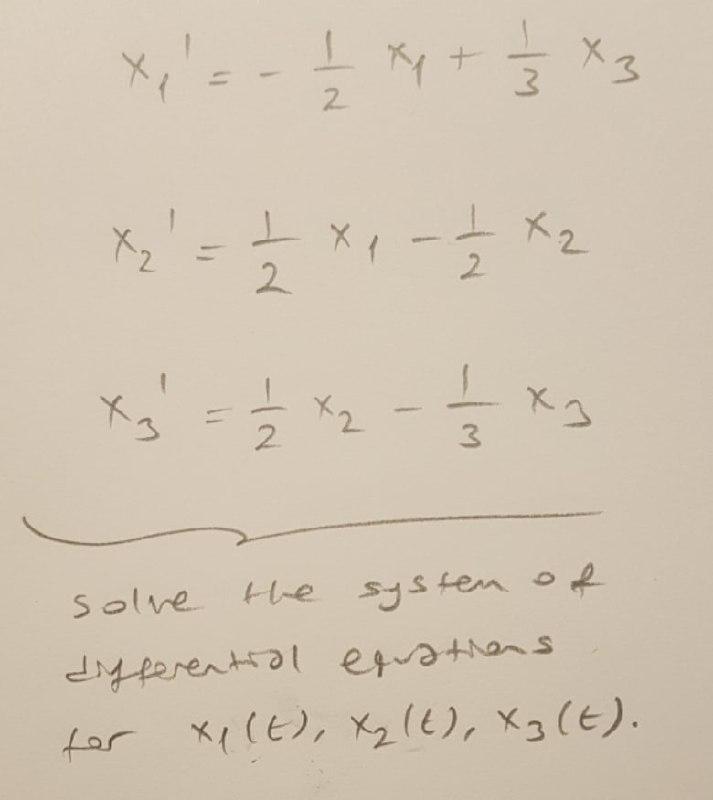 x₁' = - 1/2 x₁ + 1/3 x₃
x₂' = 1/2 x₁ - 1/2 x₂
x₃' = 1/2 x₂ - 1/3 x₃
solve the system of
differential equations
for x₁(t), x₂(t), x₃(t).